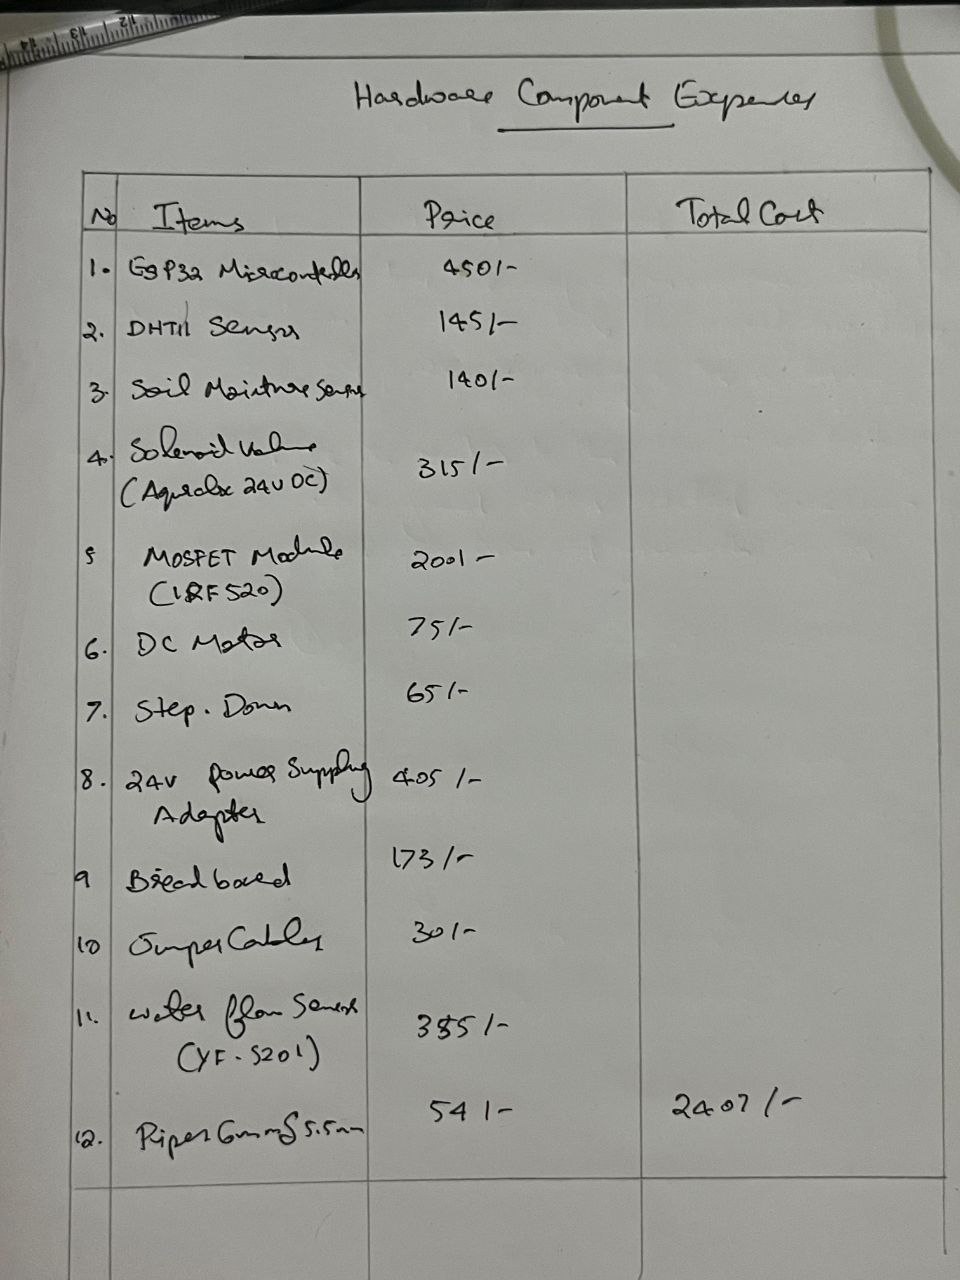 14 13 12
Hardware Component Expenses
No Items Price Total Cost
1. ESP32 Microcontroller 450/-
2. DHT11 Sensor 145/-
3. Soil Moisture Sensor 140/-
4. Solenoid Valve
(Aquralox 24V DC) 315/-
5 MOSFET Module 200/-
(IRF520)
6. DC Motor 75/-
7. Step-Down 65/-
8. 24V Power Supply 405/-
Adapter
9 Bread board 173/-
10 Jumper Cables 30/-
11. Water flow Sensor
(YF-S201) 355/-
12. Pipes 6mm & 5.5mm 54/- 2407/-